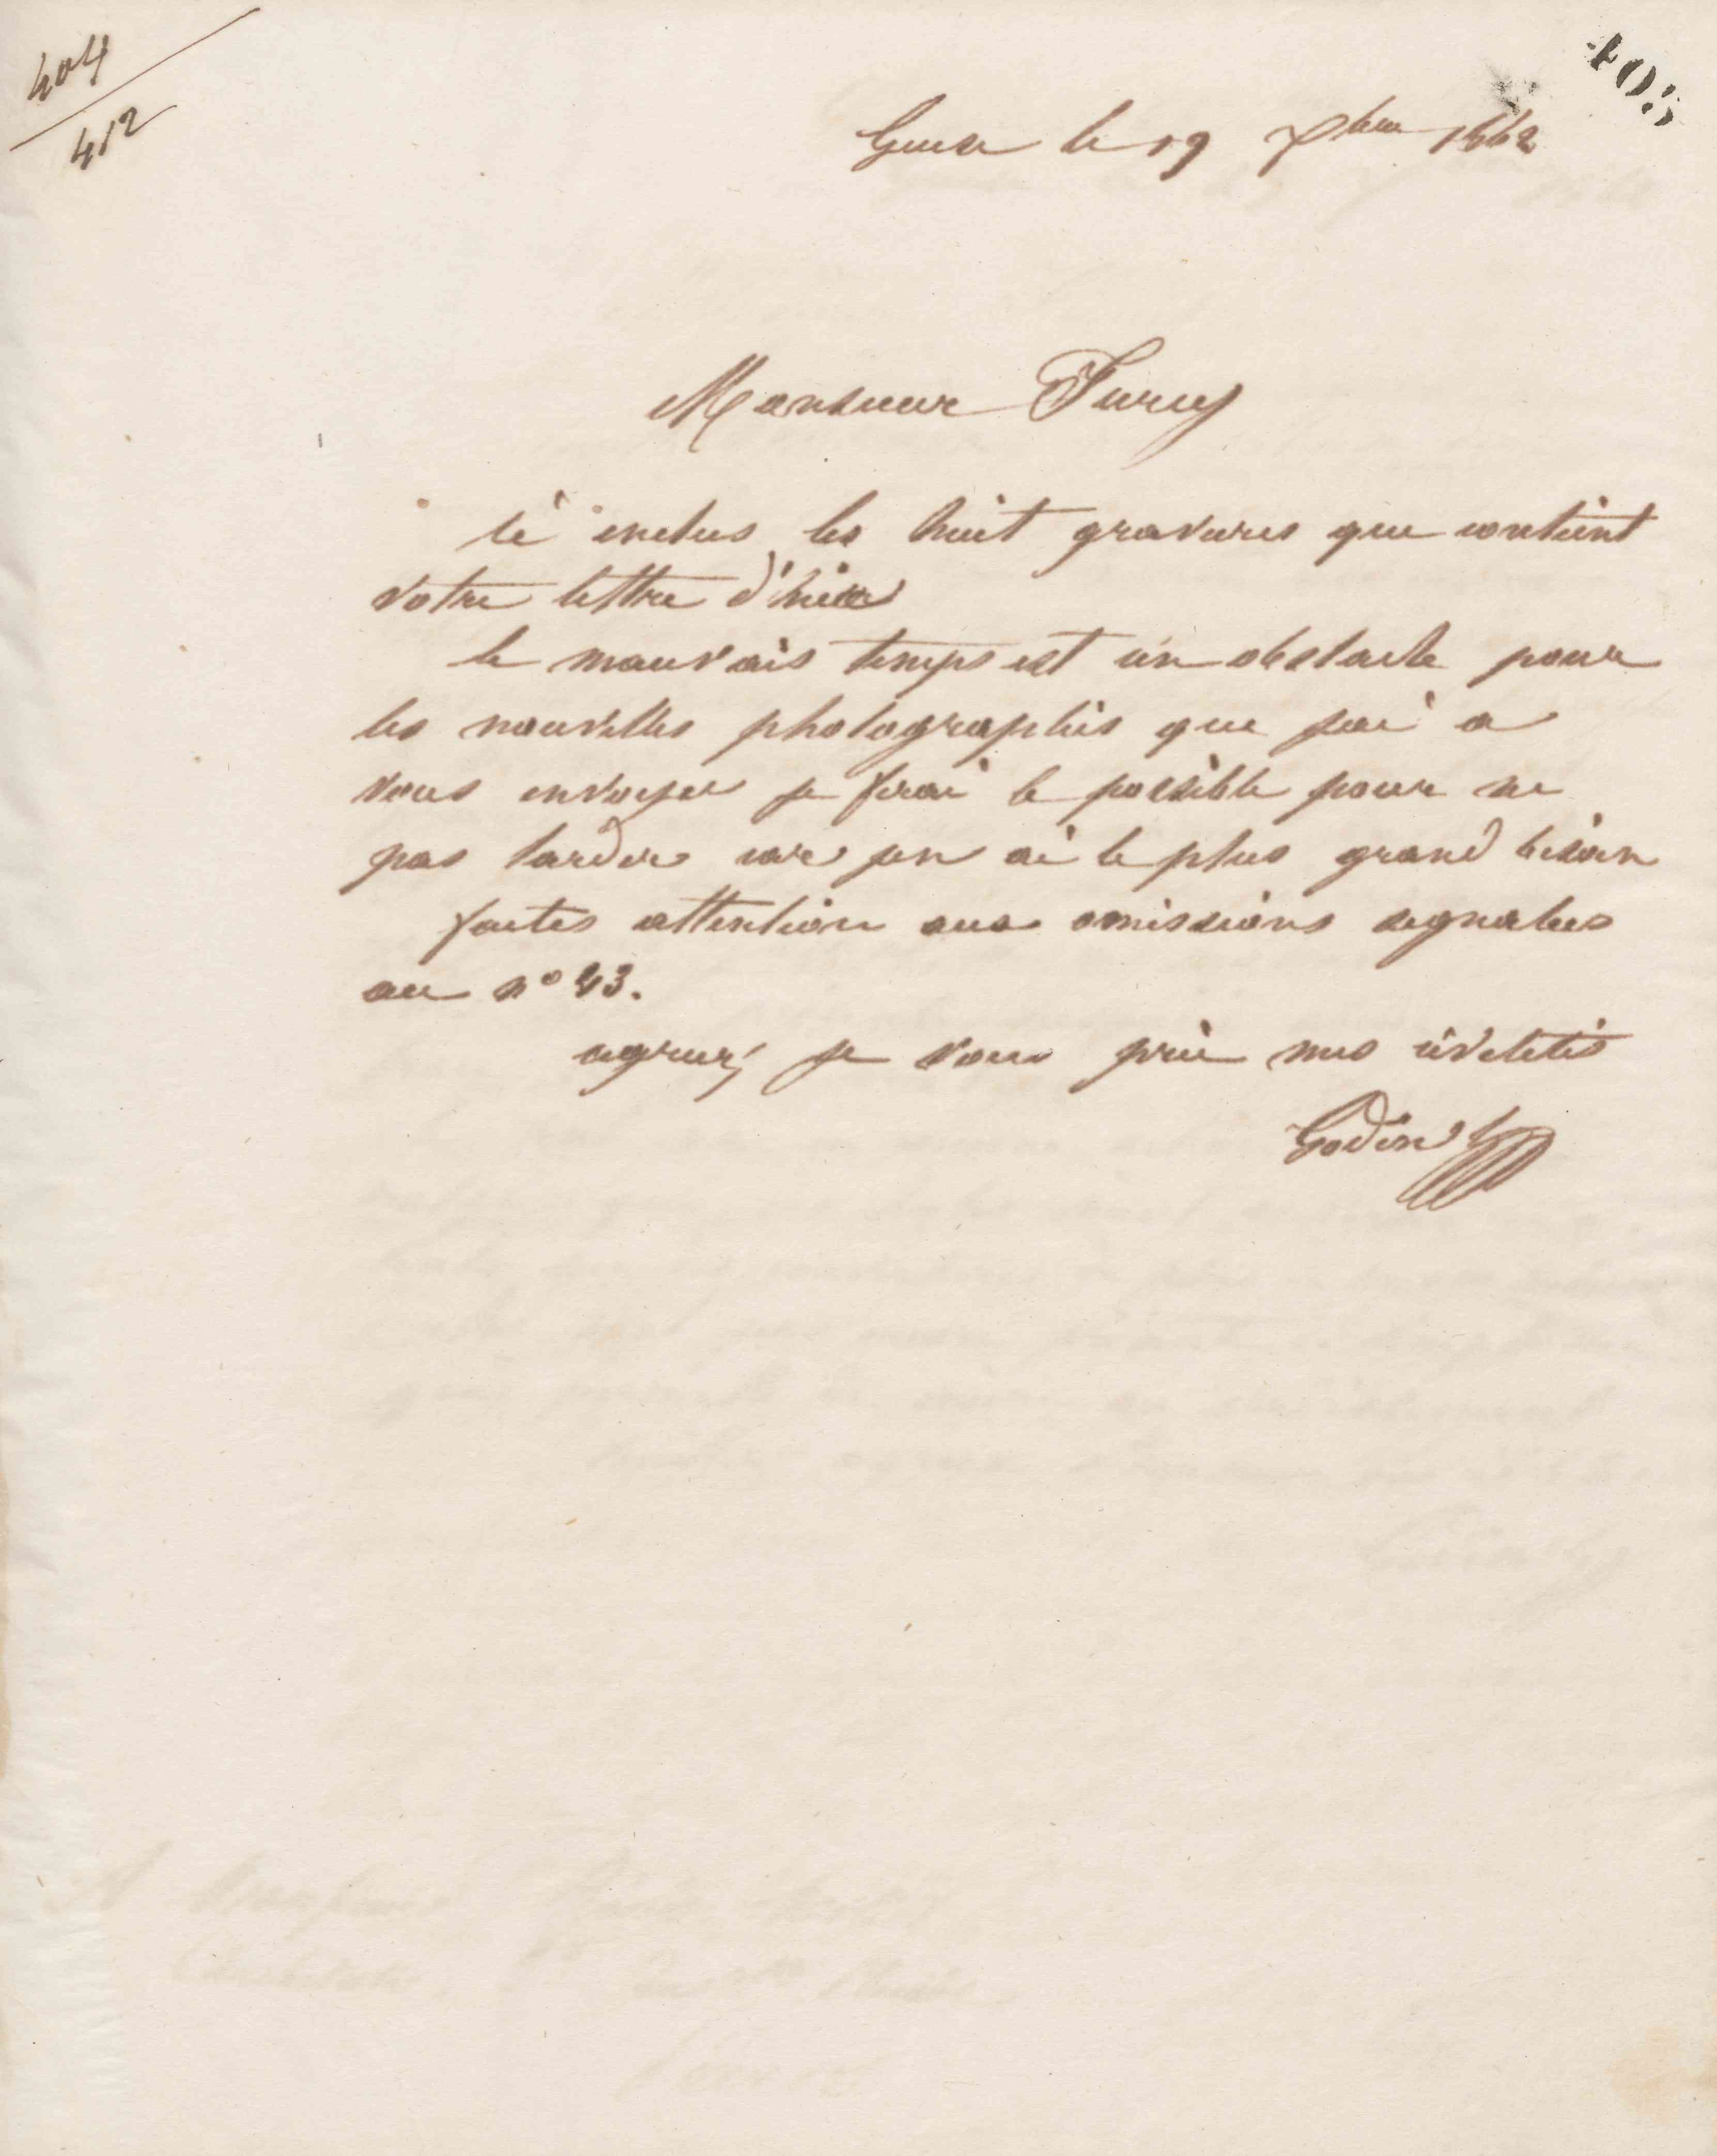 404
412
405
Guise le 19 7bre 1862
Monsieur Jurey
ci inclus les huit gravures que contient
votre lettre d'hier
le mauvais temps est un obstacle pour
les nouvelles photographies que j'ai a
vous envoyer je ferai le possible pour ne
pas tarder car j'en ai le plus grand besoin
faites attention aux omissions signalees
au n° 43.
agreez je vous prie mes civilités
Godin